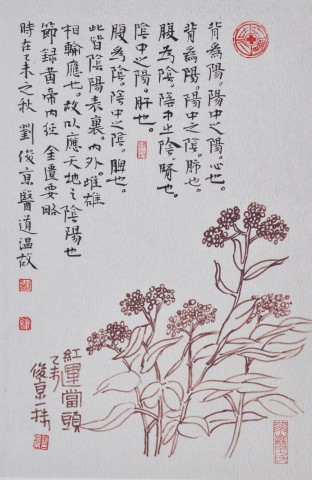 背為陽。陽中之陽。心也。
背為陽。陽中之陰。肺也。
腹為陰。陰中之陰。腎也。
陰中之陽。肝也。
腹為陰。陰中之陰。脾也。
此皆陰陽表裏。內外。雌雄
相輸應也。故以應天地之陰陽也
節錄黃帝內經 金匱要略
時在乙未之秋 劉俊京醫道溫故
紅運當頭
乙未
俊京一